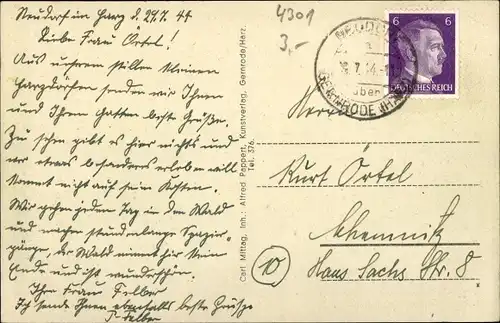 Neudorf im Harz d. 27.7.44
Liebe Frau Örtel!
Aus unserem stillen kleinen
Harzdörfchen senden wir Ihnen
und Ihrem Gatten beste Grüße.
Zu sehen gibt es hier nichts und
wer etwas besonderes erleben will
kommt nicht auf sein Kosten.
Wir gehen jeden Tag in den Wald
und machen stundenlange Spazier-
gänge, der Wald nimmt hier kein
Ende und ist wunderschön.
Ihre Frau Felber
Ich sende Ihnen ebenfalls beste Grüße
P. Felber
Carl Mittag, Inh.: Alfred Pappert, Kunstverlag, Gernrode/Harz.
Tel. 376.
4301
3,-
NEUDORF
über
GERNRODE (HARZ)
6 6
DEUTSCHES REICH
Herrn
Kurt Örtel
Chemnitz
10
Hans Sachs Str. 8